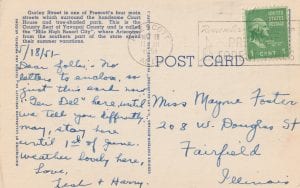 Gurley Street is one of Prescott's four main
streets which surround the handsome Court
House and tree-shaded park. This is the
County Seat of Yavapai County and is called
the "Mile High Resort City", where Arizonans
from the southern part of the state spend
their summer vacations.
5/18/51-
Dear folks:- No
letters to enclose, so
just this card. now
"Gen Del" here, until
we tell you diffrently.
may, stay here
until 1st of June.
Weather lovely here,
Love,
& Harry.
POST CARD
1 CENT 1
Miss Mayme Foster
208 W. Douglas St
Fairfield
Illinois